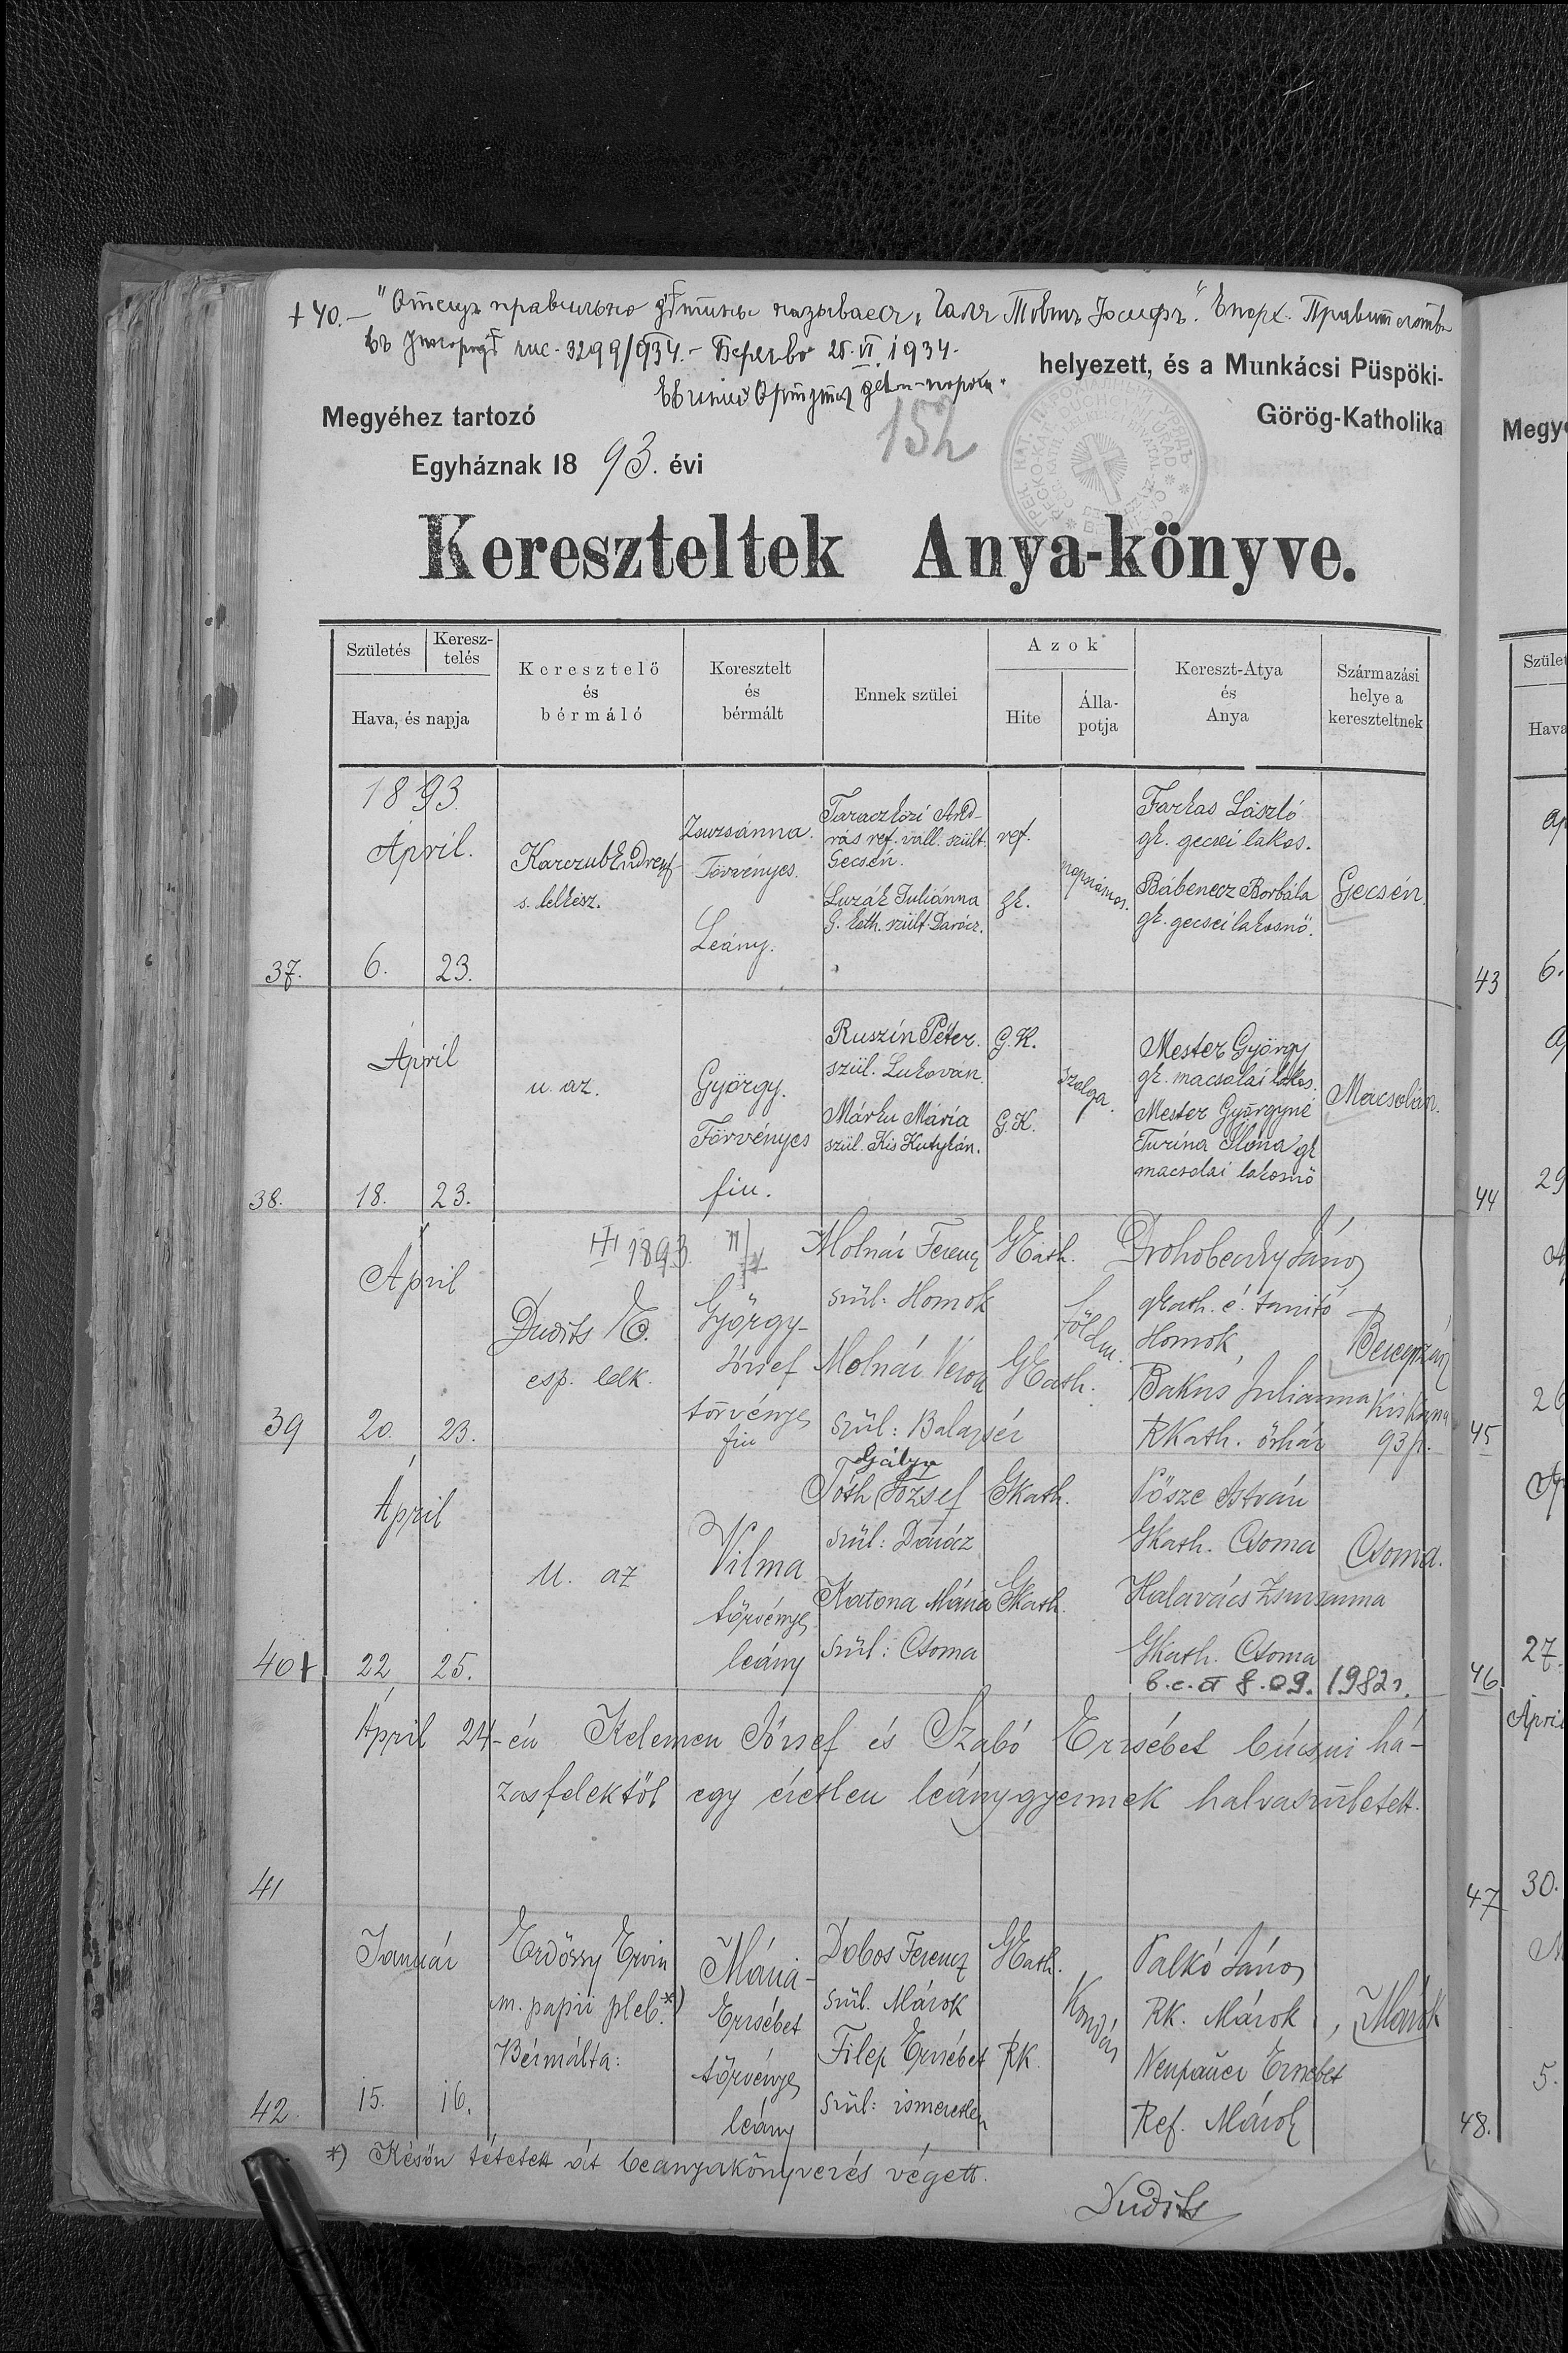 +40. — "Отецъ правильно дѣтины называеся „Галя Товтъ Іосифъ". Епарх.
въ Унгородѣ чис. 3299/934. — Берегово 25. VI. 1934.
helyezett, és a Munkácsi Püspöki-
Megyéhez tartozó
152
Görög-Katholika
Egyháznak 18 93. évi
Kereszteltek Anya-könyve.
Születés
Keresz-
telés
Hava, és napja
Keresztelő
és
bérmáló
Keresztelt
és
bérmált
Ennek szülei
Azok
Hite
Álla-
potja
Kereszt-Atya
és
Anya
Származási
helye a
kereszteltnek
37.
1893.
Április.
6. 23.
Karczub Endre
s. lelkész.
Zsuzsánna.
Törvényes.
Leány.
Taraczközi And-
rás ref. vall. szült.
Gecsén.
Luzák Juliánna
G. kath. szült Darócz.
ref.
gk.
napszámos.
Farkas László
gk. gecsei lakos.
Bábenecz Borbála
gk. gecsei lakosnő.
Gecsén.
38.
Ápril
18. 23.
u. az.
György.
Törvényes
fiu.
Ruszín Péter.
szül. Lukován.
Márku Mária
szül. Kis Kutykán.
G.K.
G.K.
szolga.
Mester György
gk. macsolai lakos.
Mester Györgyné
Turina Ilona gk
macsolai lakosnő
Macsolán.
39
Ápril
20. 23.
1893
Dudits E.
esp. lelk.
György-
József
törvényes
fiu
Molnár Ferencz
szül: Homok
Molnár Vera
szül: Balazsér
GKath.
GKath.
földm.
Drohobeczky János
gkath. é. tanító
Homok,
Bakus Julianna
RKath.
Beregszász
93
40+
Ápril
22 25.
u. az
Vilma
törvényes
leány
Gálya
Tóth József
szül: Darócz
Katona Mária
szül: Csoma
Gkath.
Gkath.
Pősze István
Gkath. Csoma
Halavács Zsuzsanna
Gkath. Csoma
8.09.1982
Csoma.
41
Ápril 24-én Kelemen József és Szabó Erzsébet bucsui há-
zasfelektöl egy éretlen leánygyermek halvaszületett.
42.
Január
15. 16.
Erdőssy Ervin
m. papii pleb. *)
Bérmálta:
Mária-
Erzsébet
törvényes
leány
Dobos Ferencz
szül. Márok
Filep Erzsébet
szül: ismeretlen
GKath.
RK.
Kondás
Palkó János
RK. Márok
Neupauer Erzsébet
Ref. Márok
Márok
*) Későn tétetett át beanyakönyvezés végett.
Dudits
Megye
Szület
Hava
43
6.
44
29
45
26
46
27.
Ápri
47
30.
48.
5.